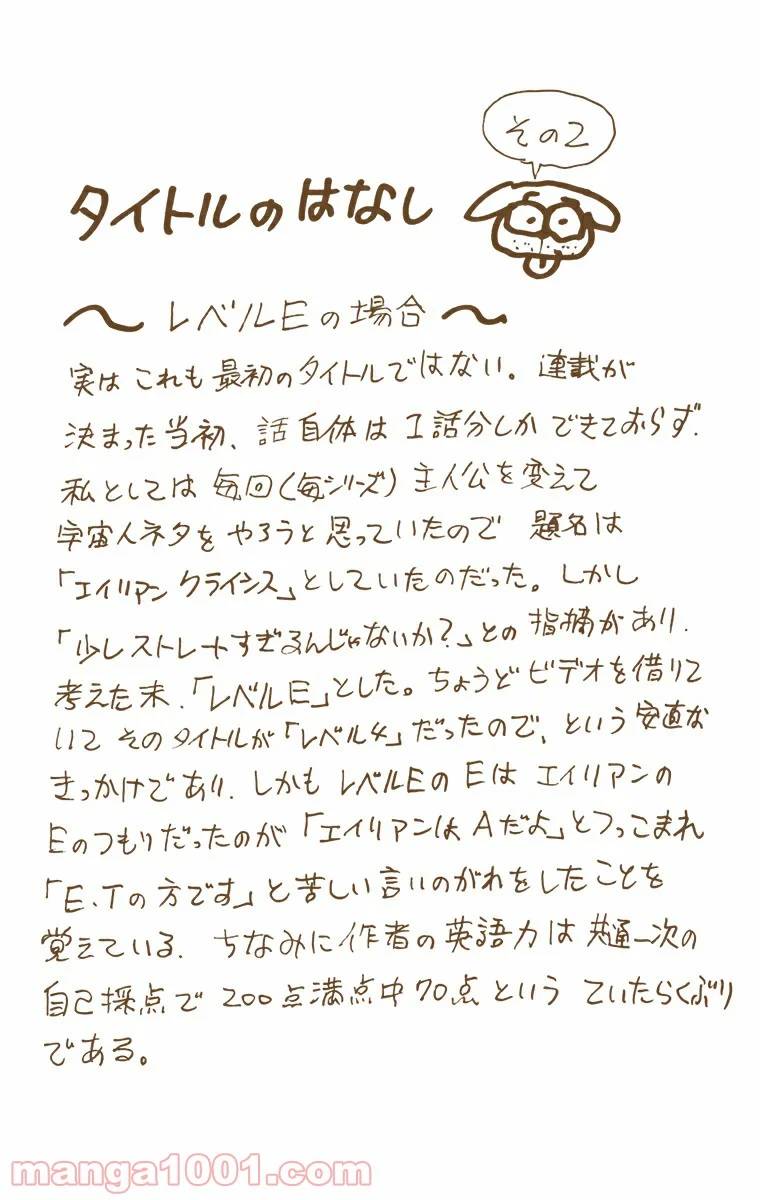 その2
タイトルのはなし
〜レベルEの場合〜
実はこれも最初のタイトルではない。連載が
決まった当初、話自体は1話分しかできておらず、
私としては毎回(毎シリーズ)主人公を変えて
宇宙人ネタをやろうと思っていたので題名は
「エイリアンクライシス」としていたのだった。しかし
「少しストレートすぎるんじゃないか?」との指摘があり、
考えた末、「レベルE」とした。ちょうどビデオを借りて
いてそのタイトルが「レベル4」だったので、という安直な
きっかけであり、しかもレベルEのEはエイリアンの
Eのつもりだったのが「エイリアンはAだよ」とつっこまれ
「E.Tの方です」と苦しい言いのがれをしたことを
覚えている。ちなみに作者の英語力は共通一次の
自己採点で200点満点中70点というていたらくぶり
である。
manga1001.com